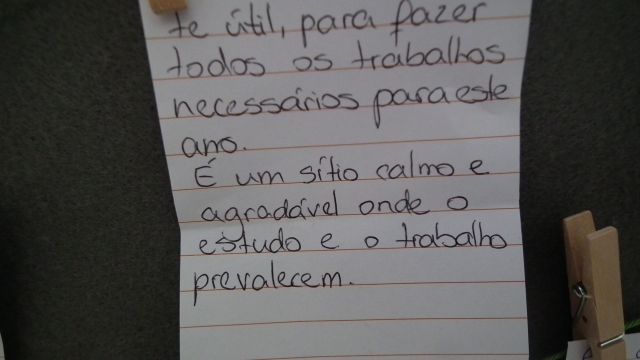 te útil, para fazer
todos os trabalhos
necessários para este
ano.
É um sítio calmo e
agradável onde o
estudo e o trabalho
prevalecem.